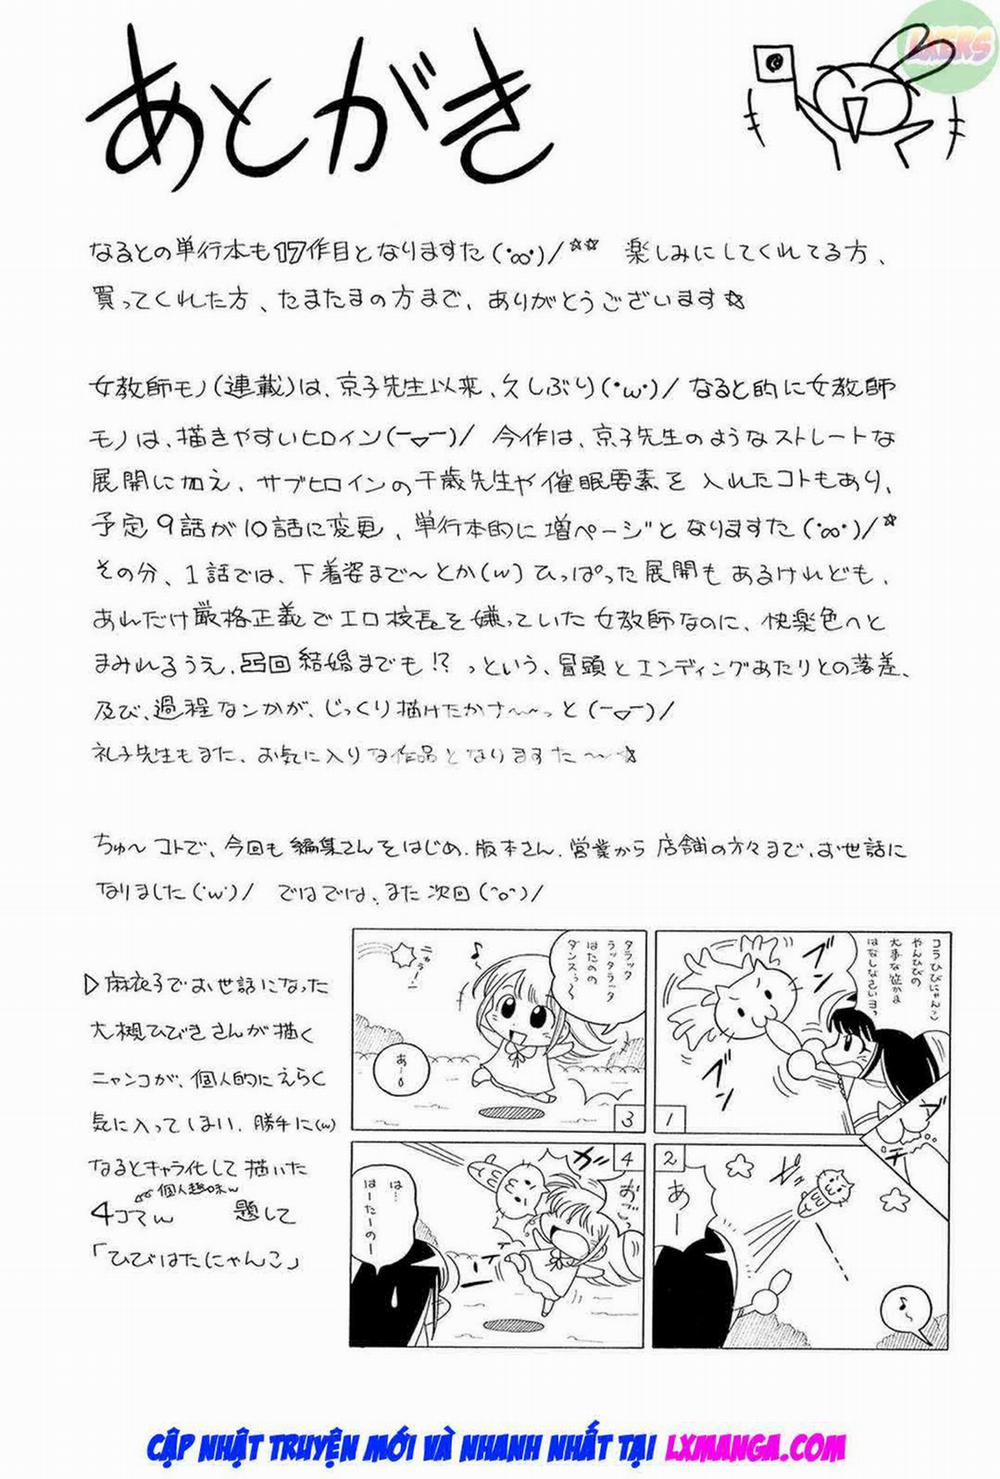 あとがき
LXERS
なるとの単行本も17作目となりますた(・∞・)/☆☆ 楽しみにしてくれてる方、
買ってくれた方、たまたまの方まで、ありがとうございます☆
女教師モノ(連載)は、京子先生以来、久しぶり(・ω・)/ なると的に女教師
モノは、描きやすいヒロイン(ー▽ー)/ 今作は、京子先生のようなストレートな
展開に加え、サブヒロインの千歳先生や催眠要素を入れたコトもあり、
予定9話が10話に変更、単行本的に増ページとなりますた(・∞・)/☆
その分、1話では、下着姿まで〜とか(w)ひっぱった展開もあるけれども、
あれだけ厳格正義でエロ校長を嫌っていた女教師なのに、快楽色へと
まみれるうえ、凸凹結婚までも!?っという、冒頭とエンディングあたりとの落差、
及び、過程なンかが、じっくり描けたかナ〜〜っと(ー▽ー)/
礼子先生もまた、お気に入りな作品となりますた〜☆
ちゅ〜コトで、今回も編集さんをはじめ、版本さん、営業から店舗の方々まで、お世話に
なりました(・ω・)/ ではでは、また次回(^o^)/
▷麻衣子でお世話になった
大槻ひびきさんが描く
ニャンコが、個人的にえらく
気に入ってしまい、勝手に(w)
なるとキャラ化して描いた
個人趣味w
4コマw 題して
「ひびはたにゃんこ」
コラひびにゃんこ
やんひびの
大事な
はなしなさいヨっ
ブン
ブン
1
2
あー
♪
タラック
ラッタラ〜タ
はたのの
ダンスっ〜
♪
ニャラー!
あー
3
4
ガッ
おごっ
は…
はーたーのー
CẬP NHẬT TRUYỆN MỚI VÀ NHANH NHẤT TẠI LXMANGA.COM